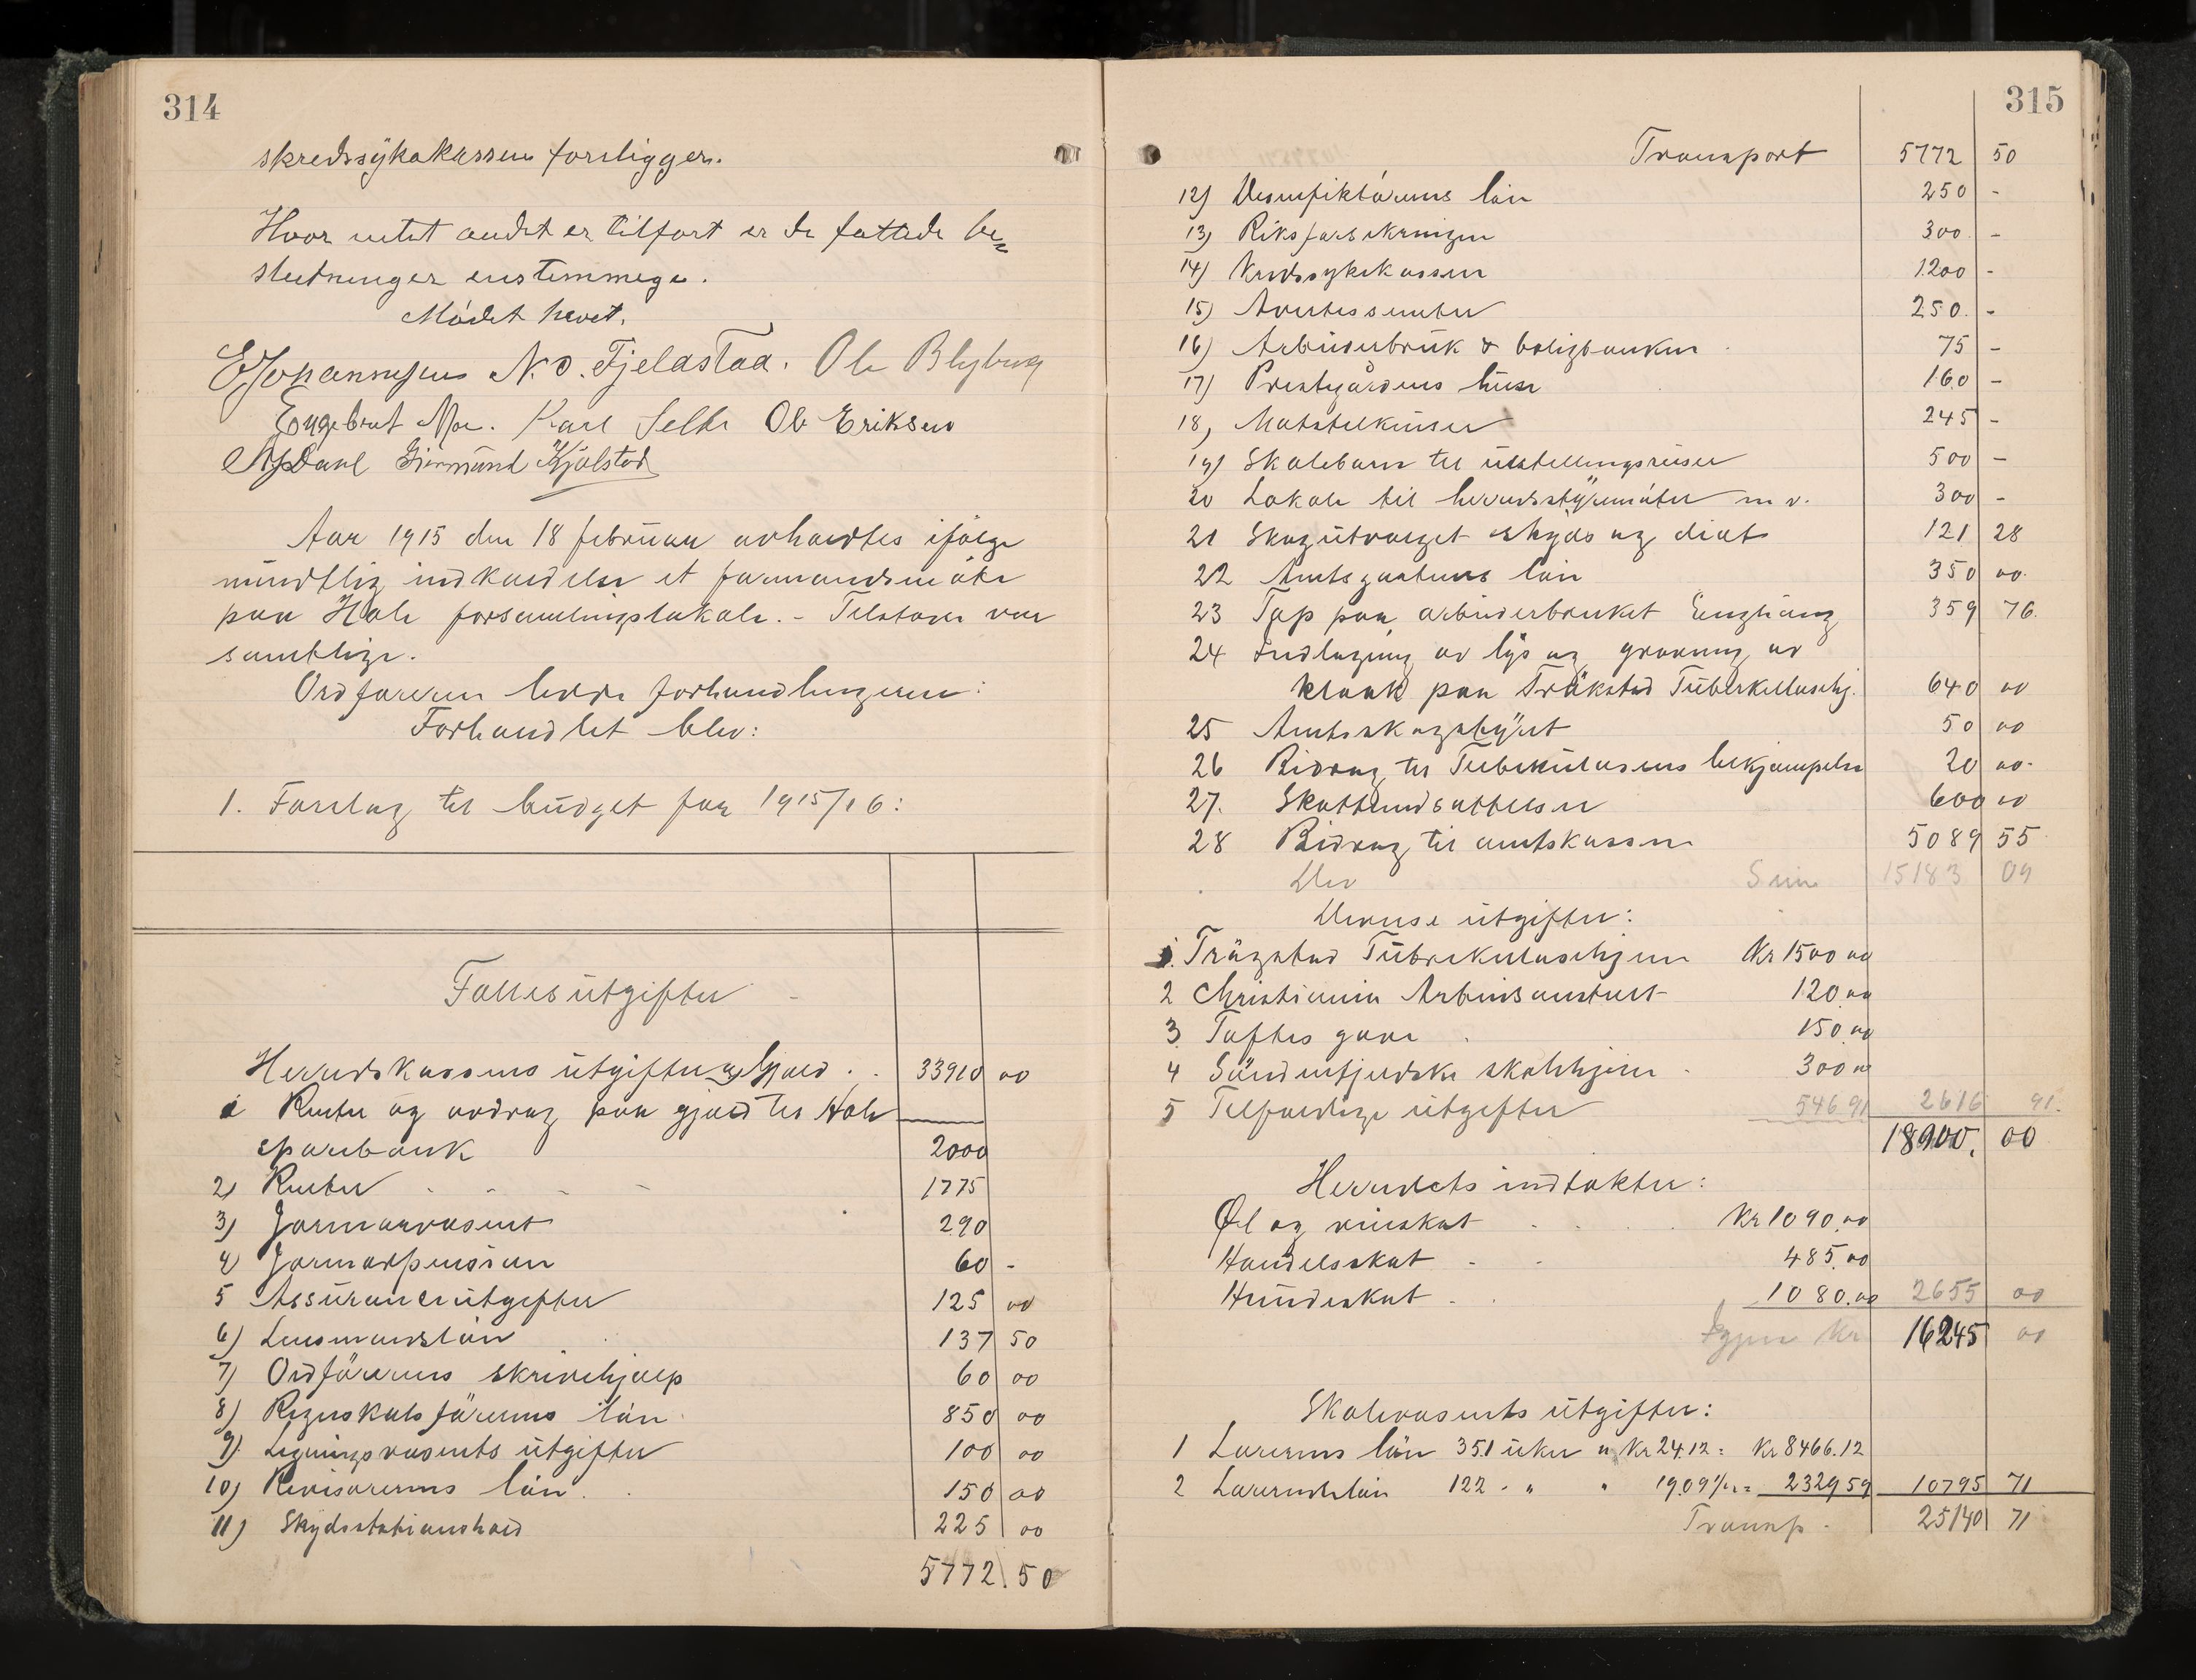 314
skredssykekassen foreligger.
Hvor intet andet er tilført er de fattede be=
slutninger enstemmige.
Mödet hevet.
E Johannessen N. O. Fjeldstad. Ole Blyberg
Engebret Moe. Karl Selte Ole Eriksen
Gudmund Kjölstad
Aar 1915 den 18 februar avholdtes ifölge
mundtlig indkaldelse et formandsmöte
paa Hole forsamlingslokale. - Tilstede var
samtlige.
Ordföreren ledde forhandlingerne:
Forhandlet blev:
1. Forslag til budget for 1915/16:
Fælles utgifter
Herredskassens utgifter og Gjæld . . 33910 00
1 Renter og avdrag paa gjæld til Hole
sparebank 2000
2) Renter - - - - 1775
3) Jormorvæsent 290
4) Jormorpension 60 -
5 Assuranceutgifter 125 00
6) Lensmandslön 137 50
7) Ordförerens skrivehjælp 60 00
8) Regnskabsförerens lön 850 00
9) Ligningsvæsents utgifter 100 00
10) Revisorerns lön . . 150 00
11) Skydsstationshold 225 00
5772.50
315
Transport 5772 50
12) Desinfektörens lön 250 -
13) Riksforsikringen 300 -
14) Kredssykekassen 1200 -
15) Avertissementer 250. -
16) Arbeiderbruk & boligbanken 75 -
17) Prestegårdens huse 160 -
18) Matstelkurser 245 -
19) Skolebarn til utstillingsreiser 500 -
20 Lokale til herredsstyremöter m v. 300 -
21 Skogutvalget skyds og diæt 121 28
22 Amtsgartners lön 350 00
23 Tap paa arbeiderbruket Enghaug 359 76.
24 Indlægning av lys og gravning av
kloak paa Trökstad Tuberkuloschj. 640 00
25 Amtsskogstyret 50 00
26 Bidrag til Tuberkulosens bekjæmpelse 20 00
27. Skatteundsættelser 600 00
28 Bidrag til amtskassen 5089 55
Div Sum 15183 09
Diverse utgifter:
1. Trögstad Tuberkulosehjem Kr 1500 00
2 Christiania Arbeidsanstalt 120.00
3. Toftes gave 150.00
4 Söndenfjeldske skolehjem 300 00
5 Tilfældige utgifter 546.91 2616 91.
18900. 00
Herredets indtekter:
Øl og vinskat . . . . Kr 1090.00
Handelsskat - - 485.00
Hundeskat - . 1080.00 2655 00
Igjen Kr 16245 00
Skolevæsents utgifter:
1 Lærerens lön 351 uker a Kr 24.12 = Kr 8466.12
2 Lærerindelön 122 - " " 19.09½ = 2329 59 10795 71
Transp. 25140 71